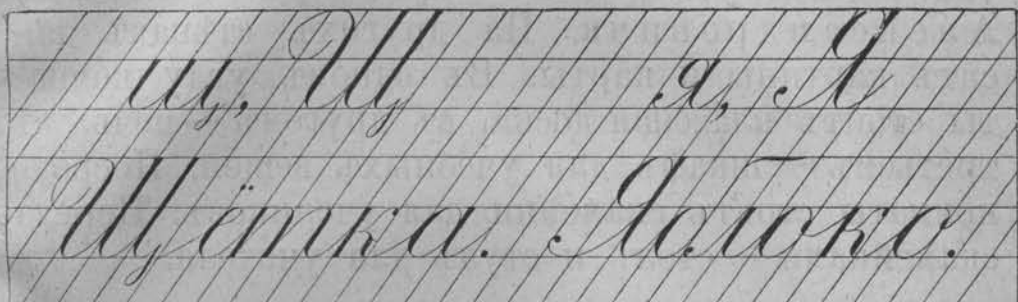 щ, Щ я, Я
Щётка. Яблоко.